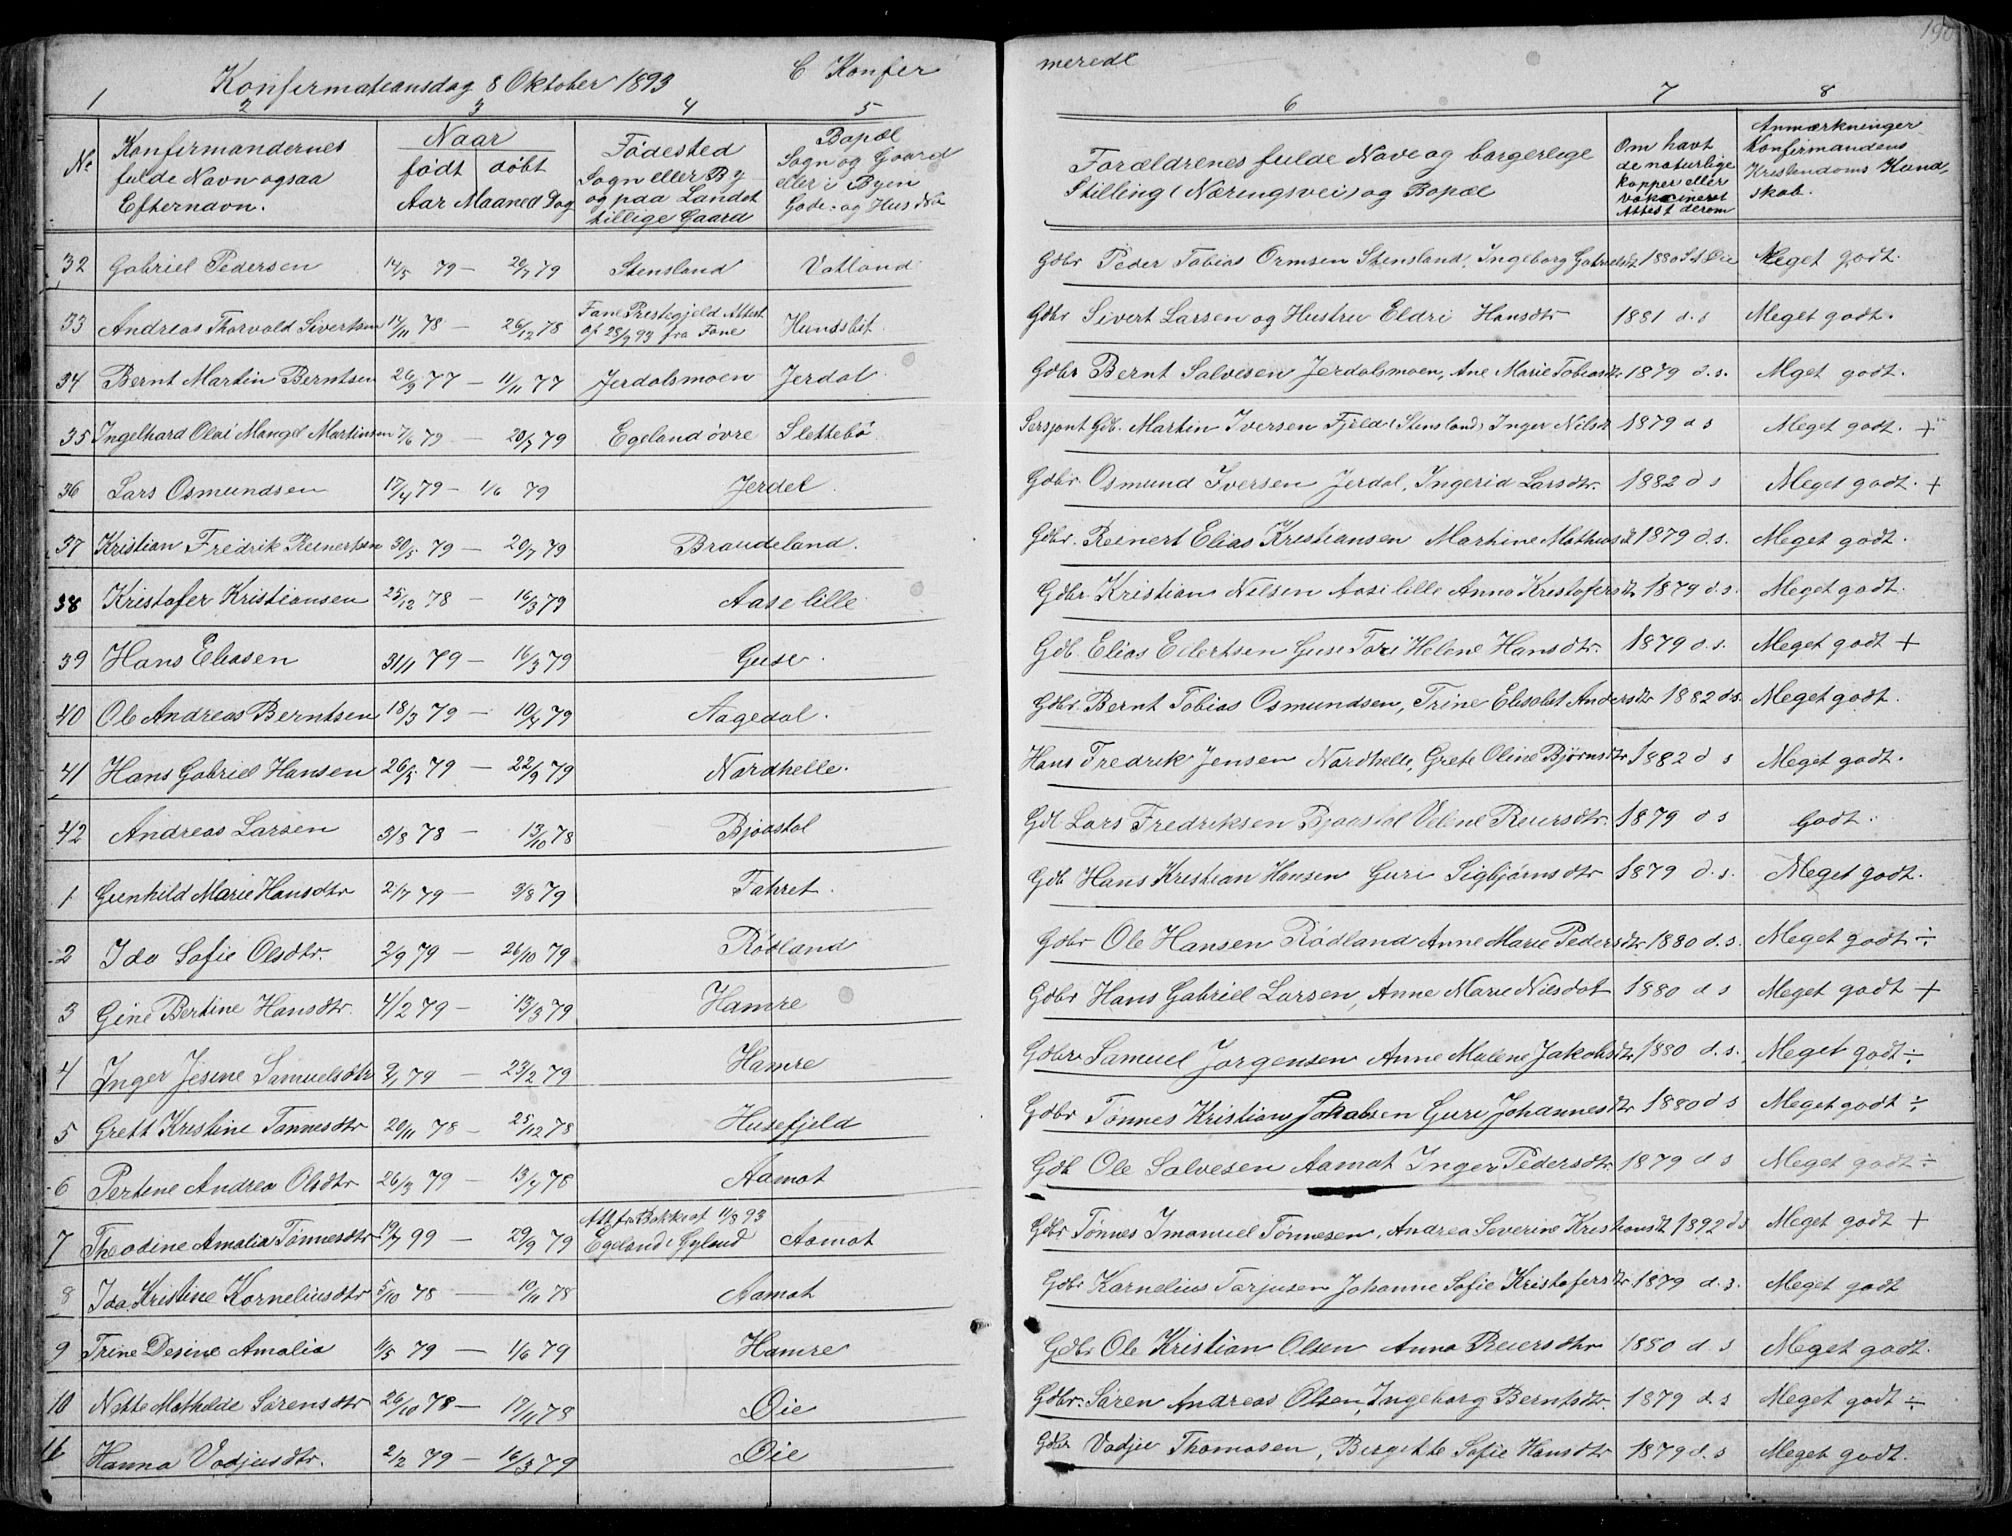 190
Konfirmationsdag 8 Oktober 1893 C Konfer meredl
1 2 3 4 5 6 7 8
No Konfirmandernes fulde Navn ogsaa Efternavn.
Naar født døbt Aar Maaned Dag
Fødested Sogn eller By og paa Landet tillige Gaard
Bopæl Sogn og Gaard eller i Byen Gade og Hus No
Forældrenes fulde Nave og borgerlige Stilling (Næringsvei) og Bopæl
Om havt de naturlige kopper eller vakcineret Attest derom
Anmærkninger Konfirmandens Kristendoms Kundskab.
32 Gabriel Pedersen 14/5 79 — 20/7 79 Stensland Vatland Gdbr Peder Tobias Ormsen Stensland, Ingeborg Gabrielsdt 1880 St Øie Meget godt.
33 Andreas Thorvald Sivertsen 17/11 78 — 26/12 78 Fane Prestegjeld Attest af 28/9 93 fra Fane Hundsbit. Gdbr Sivert Larsen og Hustru Eldri Hansdtr 1881 d.s Meget godt.
34 Bernt Martin Berntsen 26/9 77 — 11/11 77 Jerdalsmoen Jerdal. Gdbr Bernt Salvesen Jerdalsmoen, Ane Marie Tobiasdtr 1879 d.s. Mget godt.
35 Ingelhard Olai Mangel Martinsen 7/6 79 — 20/7 79 Egeland øvre Slettebø Sersjant Gdb. Martin Iversen Fjeld (Stensland) Inger Nilsdt 1879 d s Meget godt. +
36 Lars Osmundsen 17/4 79 — 1/6 79 Jerdel. Gdbr. Osmund Iversen Jerdal, Ingerid Larsdtr. 1882 d s Meget godt. +
37 Kristian Fredrik Reinertsen 30/5 79 — 20/7 79 Braudeland. Gdbr. Reinert Elias Kristiansen Martine Mathiasdt 1879 d.s. Meget godt.
38 Kristofer Kristiansen 25/12 78 — 16/3 79 Aase lille Gdbr. Kristian Nilsen Aase lille Anna Kristofersdtr 1879 d.s. Meget godt.
39 Hans Eliasen 31/1 79 — 16/3 79 Guse. Gdb. Elias Eilertsen Guse Tori Helene Hansdtr. 1879 d.s. Meget godt +
40 Ole Andreas Berntsen 18/3 79 — 10/4 79 Aagedal. Gdbr. Bernt Tobias Osmundsen, Trine Elisabet Andersdtr 1882 ds. Meget godt.
41 Hans Gabriel Hansen 26/5 79 — 22/9 79 Nordhelle. Hans Fredrik Jensen Nordhelle, Grete Oline Bjørnsdtr 1882 d s Meget godt.
42 Andreas Larsen 3/8 78 — 13/10 78 Bjaastal Gdb Lars Fredriksen Bjaastal Velene Reiersdtr. 1879 d s Godt.
1 Gunhild Marie Hansdtr 2/7 79 — 3/8 79 Tahret. Gdb Hans Kristian Hansen Guri Sigbjørnsdtr 1879 d.s. Meget godt.
2 Ida Sofie Olsdtr. 2/9 79 — 26/10 79 Rødland Gdbr Ole Hansen Rødland Anne Marie Pedersdtr 1880 d.s. Meget godt ÷
3 Gine Bertine Hansdtr. 4/2 79 — 13/3 79 Hamre Gdbr Hans Gabriel Larsen, Anne Marie Nilsdat 1880 d s Meget godt +
4 Inger Jesine Samuelsdtr 9/1 79 — 23/2 79 Hamre Gdbr Samuel Jorgensen Anne Malene Jakobsdtr 1880 d.s. Meget godt ÷
5 Grett Kristine Tønnesdtr 20/11 78 — 25/12 78 Husefjeld Gdbr Tønnes Kristians Jakobsen Guri Johannesdtr 1880 d s Meget godt ÷
6 Pertene Andrea Olsdtr 26/3 79 — 13/4 78 Aamot Gdb Ole Salvesen Aamot Inger Pedersdtr 1879 d s Meget godt ÷
7 Theodine Amalia Tønnesdtr 19/7 99 — 29/9 79 Att fr Bakke af 11/8 93 Egeland i Gyland Aamot Gdbr Tønnes Imanuel Tønnesen, Andrea Severine Kristiansdt 1892 d.s Meget godt +
8 Ida Kristine Korneliusdtr 5/10 78 — 10/11 78 Aamot Gdbr Karnelius Tarjusen Johanne Sofie Kristofersdtr 1879 d.s. Meget godt
9 Trine Desine Amalia 11/5 79 — 1/6 79 Hamre Gdbr Ole Kristian Olsen Anna Reiersdtr 1880 d.s Meget godt.
10 Nette Mathilde Sørensdtr 26/10 78 — 17/11 78 Øie Gdbr. Søren Andreas Olsen, Ingeborg Berntsdtr. 1879 d.s Meget godt ÷
11 Hanna Vadjusdtr. 2/2 79 — 16/3 79 Øie Gdbr Vadjie Thomasen, Bergitte Sofie Hansdtr 1879 d.s Meget godt.